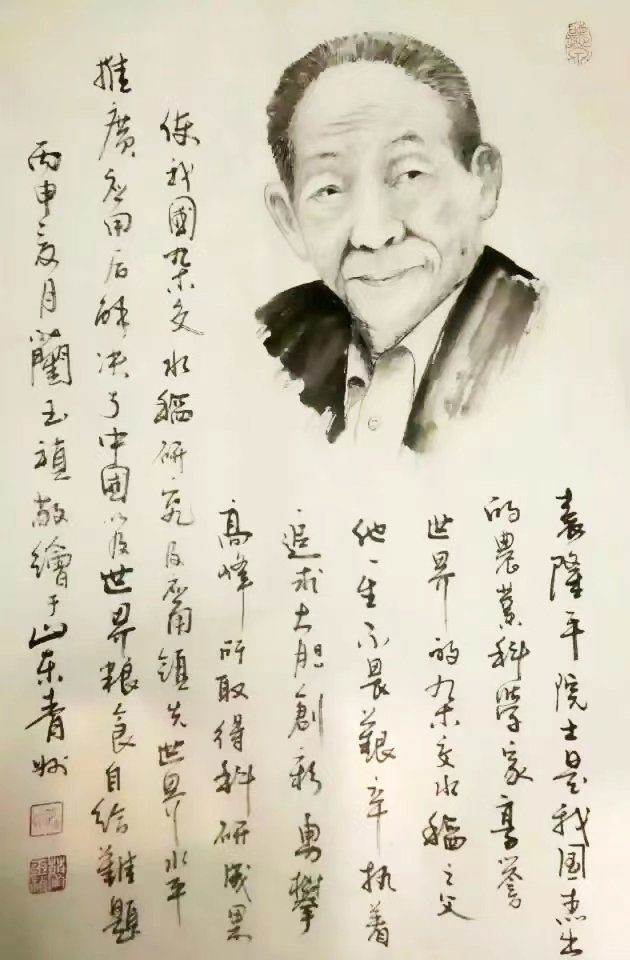 袁隆平院士是我国杰出
的農業科学家享誉
世界的杂交水稻之父
他一生不畏艱辛执着
追求大胆創新勇攀
高峰所取得科研成果
使我國杂交水稻研究及应用领先世界水平
推廣应用后解决了中國以及世界粮食自给難题
丙申亥月藺玉禎敬繪于山东青州